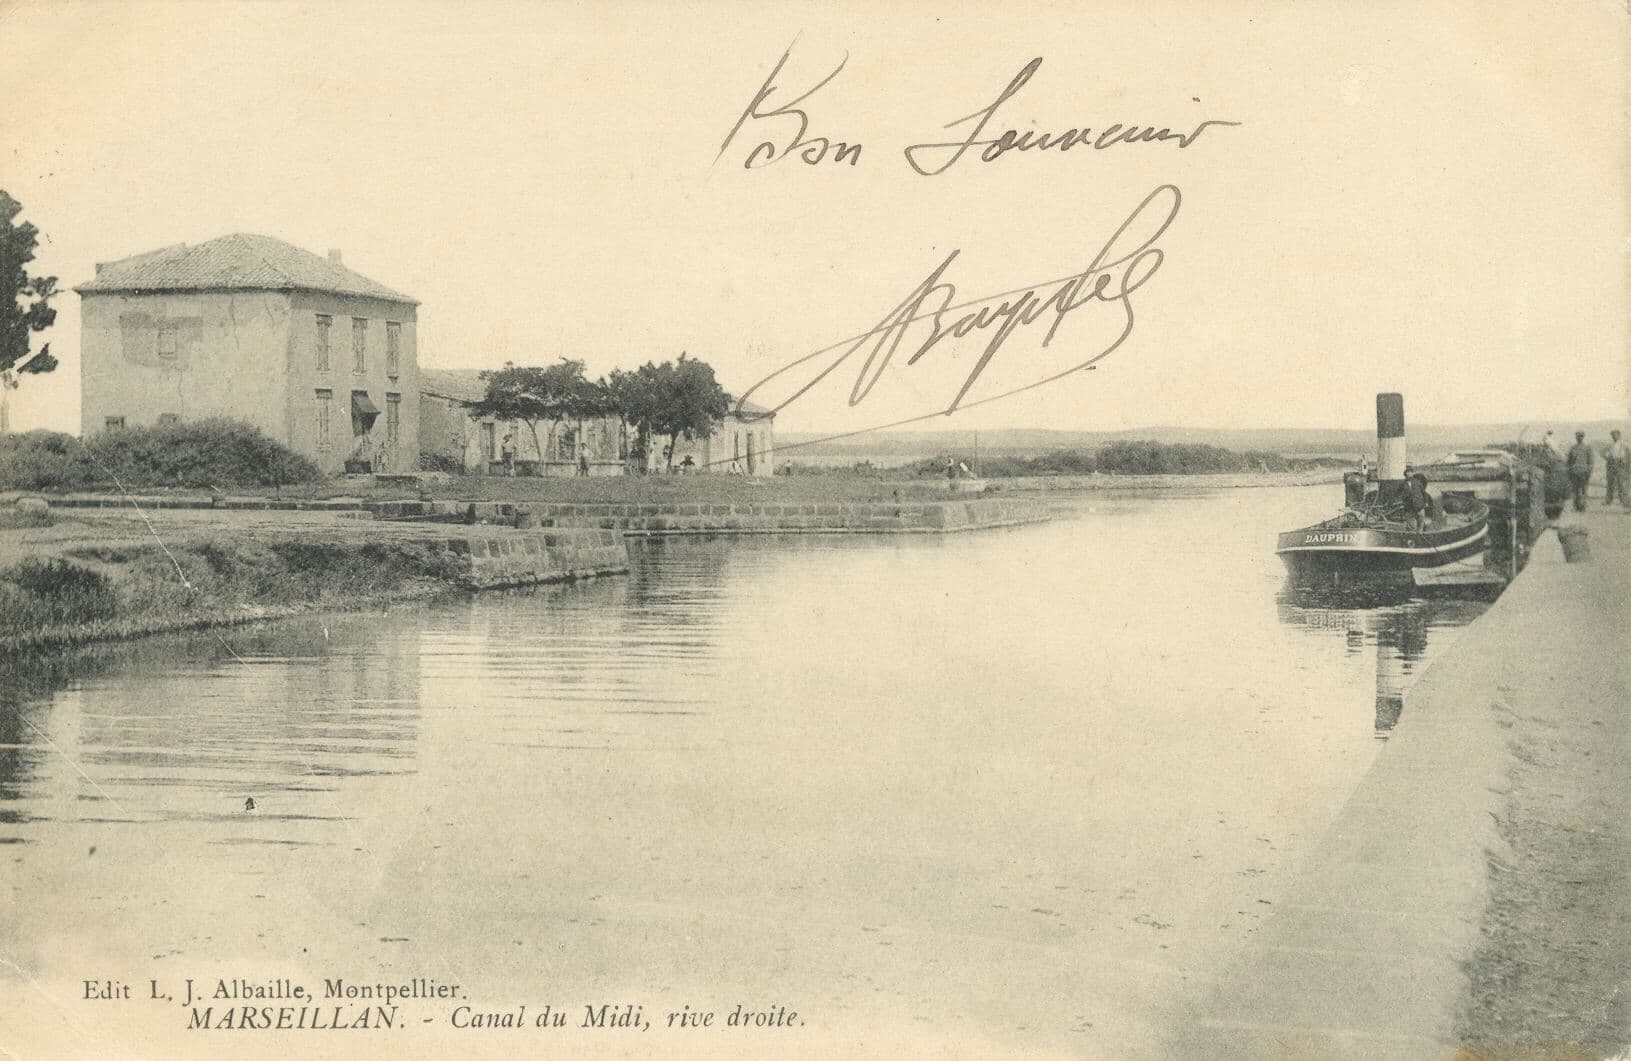 Bon Souvenir
DAUPHIN
Edit L. J. Albaille, Montpellier.
MARSEILLAN. - Canal du Midi, rive droite.